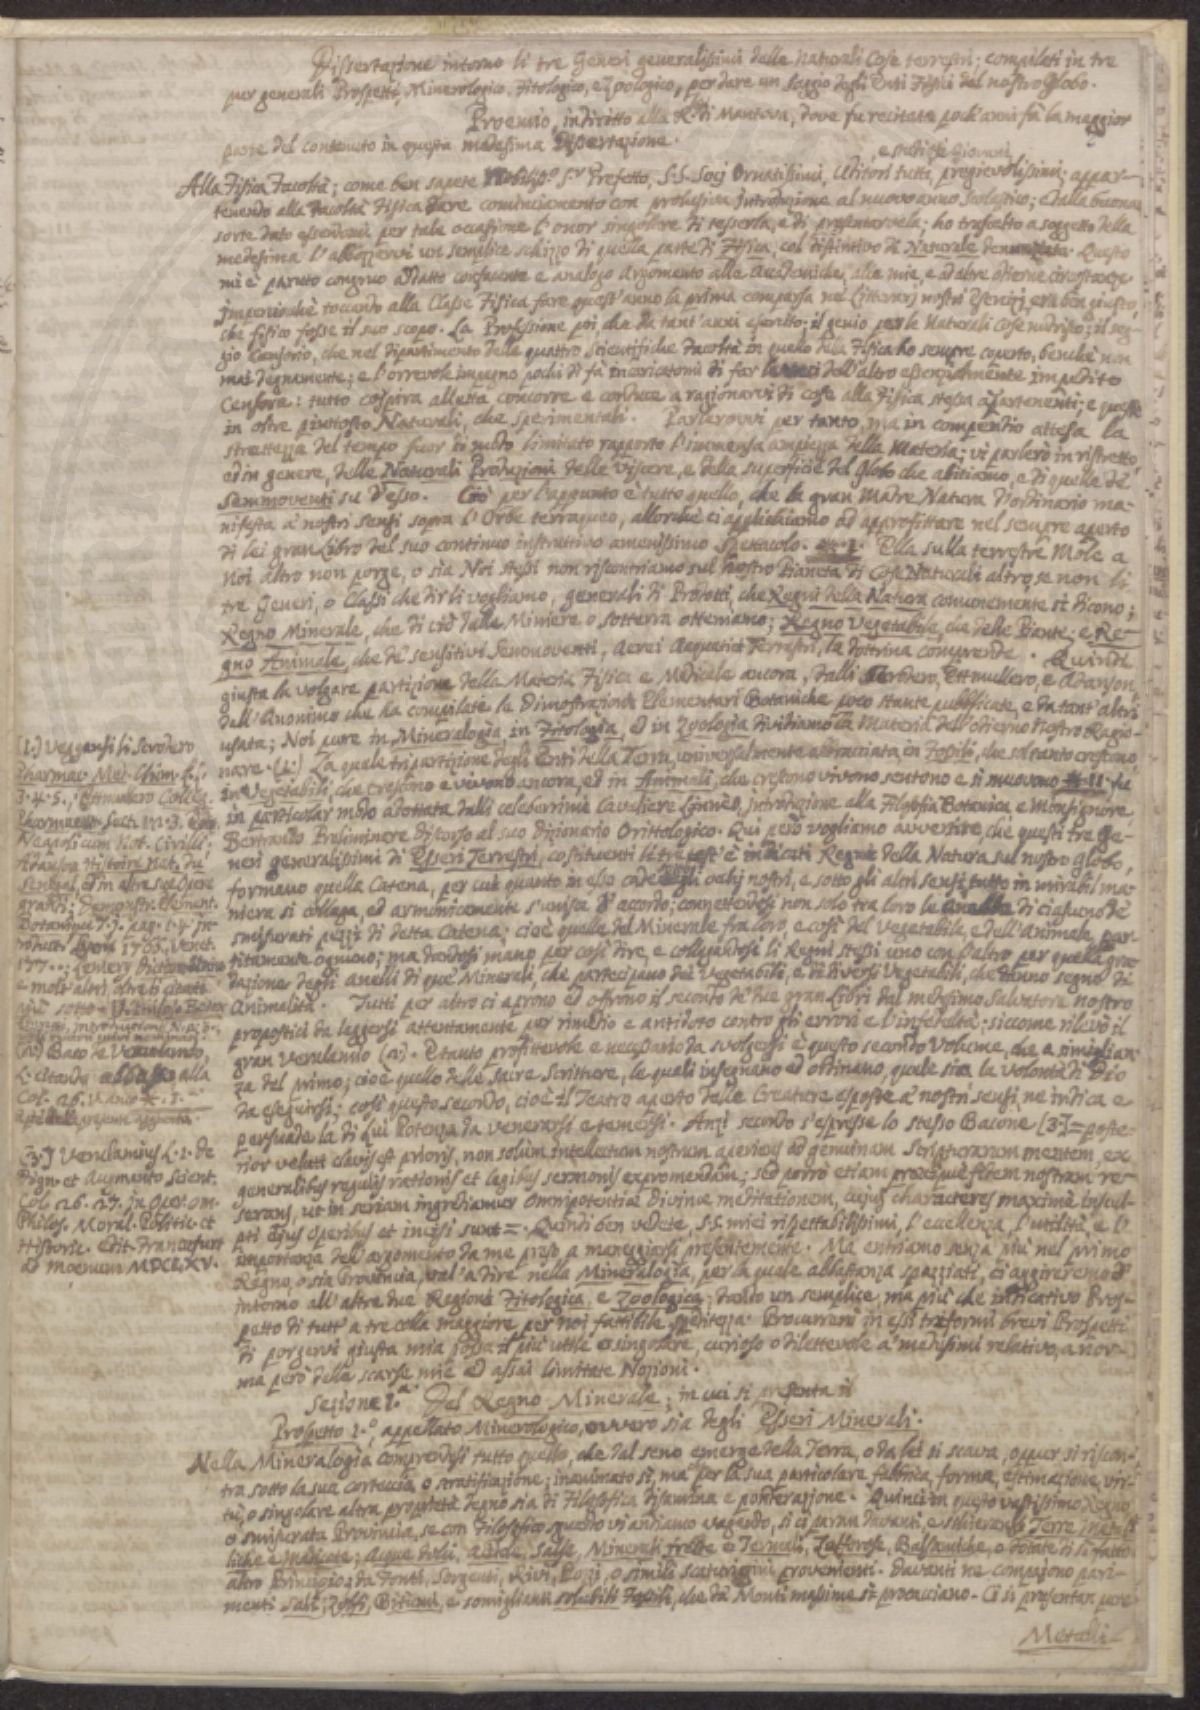 Dissertazione intorno li tre Generi generalissimi delle Naturali Cose terrestri; compilati in tre
pur generali Prospetti, Minerologico, Fitologico, e Zoologico, per dare un saggio degli Enti Fisici del nostro Globo.
Proemio, indiritto alla di Mantova, dove fu recitata poch'anni fà la maggior
parte del contenuto in questa medesima Dissertazione.
e studiosi Giovani
Alla Fisica Facoltà; come ben sapete Sr. Prefetto, S.S. Socj Ornatissimi, Uditori tutti, pregievolissimi, appar-
tenendo alla Facoltà Fisica dare cominciamento con prolusiva Introduzione al nuovo anno Scolastico; e dalla buona
sorte dato essendomi per tale occasione l'onor singolare di tesserla, e di presentarvela; ho trascelto a soggetto della
medesima l'abbozzarvi un semplice schizzo di quella parte di Fisica, col distintivo di Naturale denominata. Questo
mi è paruto congruo adatto confluente e analogo Argomento alle Academiche, alle mie, e ad altre odierne circostanze.
Imperciochè toccando alla Classe Fisica fare quest'anno la prima comparsa ne' Litterarj nostri Esercizj, era ben giusto,
che fisico fosse il suo scopo. La Professione poi, che da tant'anni esercito; il genio per le Naturali Cose nudrito; il seg-
gio Censorio, che nel dipartimento delle quattro Scientifiche Facoltà in quello della Fisica ho sempre coperto, benchè non
mai degnamente; e l'orrevole impegno pochi dì fa incaricatomi di far le veci dell'altro essenzialmente impedito
Censore: tutto cospira alletta concorre e conduce a ragionarvi di cose alla Fisica stessa apartenenti; e queste
in oltre piuttosto Naturali, che sperimentali. Parlerovvi per tanto, ma in compendio attesa la
strettezza del tempo fuor di modo limitato rapporto l'immensa ampiezza della Materia; vi parlerò in ristretto,
ed in genere, delle Naturali Produzioni delle viscere, e della superficie del Globo che abitiamo, e di quelle de'
Semmoventi su d'esso. Ciò per l'appunto è tutto quello, che la gran Madre Natura d'ordinario ma-
nifesta a' nostri sensi sopra l'Orbe terraqueo, allorchè ci applichiamo ad approfittare nel sempre aperto
di lei gran Libro del suo continuo instruttivo amenissimo spettacolo. Ella sulla terrestre Mole a
Noi altro non porge, o sia Noi stessi non riscontriamo sul nostro Pianeta di Cose Naturali altro, se non li
tre Generi, o Classi che dirli vogliamo, generali di Prodotti, che Regni della Natura comunemente si dicono;
Regno Minerale, che di ciò dalle Miniere o sotterra otteniamo; Regno Vegetabile, che delle Piante; e Re-
gno Animale, che de' sensitivi Semoventi, Aerei Aequatici Terrestri, la dottrina comprende. Quindi
giusta la volgare partizione della Materia Fisica e Medicale ancora, dalli Scrodero, Ettmullero, e Adanson,
dell'Anonimo che ha compilate le Dimostrazioni Elementari Botaniche poco stante pubblicate, e da tant'altri
usata; Noi pure in Mineralogia, in Fitologia, ed in Zoologia dividiamo la Materia dell'odierno nostro Ragio-
nare (1.) La quale tripartizione degli Enti della Terra, universalmente abbracciata, in Fossili, che soltanto crescono,
in Vegetabili, che crescono e vivono ancora, ed in Animali, che crescono vivono sentono e si muovono fu
in particolar modo adottata dalli celeberrimi Cavaliere Linneo, Introduzione alla Filosofia Botanica, e Monsignore
Bertrando Preliminare discorso al suo dizionario Orittologico. Qui però vogliamo avvertire, che questi tre Ge-
neri generalissimi di Esseri Terrestri, costituenti li tre test'è indicati Regni della Natura sul nostro Globo,
formano quella Catena, per cui quanto in esso cade agli occhj nostri, e sotto gli altri sensi, tutto in mirabil ma-
niera si collega, ed armonicamente s'unisce d'accordo; connettendosi non solo tra loro le anella di ciascuno de'
smisurati pezzi di detta Catena; cioè quelle del Minerale fra loro, e così del Vegetabile, e dell'Animale, par-
titamente ognuno; ma dandosi mano per così dire, e collegandosi li Regni stessi uno con l'altro per quella gra-
dazione degli anelli di que' Minerali, che partecipano de' Vegetabili, e di diversi Vegetabili, che danno segno di
Animalità. Tutti per altro ci aprono ed offrono il secondo de' due gran Libri dal medesimo Salvatore nostro
propostici da leggersi attentamente per rimedio e antidoto contro gli errori e l'infedeltà; siccome rilevò il
gran Verulamio (2.). E tanto profittevole e necessario da svolgersi è questo secondo Volume, che a simiglian-
za del primo; cioè quello delle Sacre Scritture, le quali insegnano ed ordinano, quale sia la volontà di Dio
da eseguirsi; così questo secondo, cioè il Teatro aperto delle Creature esposte a' nostri sensi, ne indica e
persuade la di Lui Potenza da venerarsi e temersi. Anzi secondo s'espresse lo stesso Bacone [3.] = poste-
rior veluti clavis est prioris, non solùm intellectum nostrum aperiens ad genuinam Scripturarum mentem, ex
generalibus regulis rationis et legibus sermonis expromendam; sed porrò etiam præcipuè fidem nostram re-
serans, ut in seriam ingrediamur Omnipotentiæ Divinæ meditationem, cujus characteres maximè inscul-
pti Ejus operibus et incisi sunt =. Quindi ben vedete, S.S. miei rispettabilissimi, l'eccellenza, l'utilità, e l'
importanza dell'argomento da me preso a maneggiarsi presentemente. Ma entriamo senza più nel primo
Regno, o sia Provincia, val'a dire nella Mineralogia, per la quale abbastanza spazziati, ci aggireremo d'
intorno all'altre due Regioni Fitologica, e Zoologica; dando un semplice, ma più che indicativo Pros-
petto di tutt'a tre colla maggiore per noi fattibile speditezza. Procurerò in essi tre formi brevi Prospetti
di porgervi giusta mia possa il più utile o singolare, curioso o dilettevole a' medesimi relativo, a nor-
ma però delle scarse mie ed assai limitate Nozioni.
Sezione I.a Del Regno Minerale; in cui si presenta il
Prospetto I.o, appellato Minerologico, ovvero sia degli Esseri Minerali.
Nella Mineralogia comprendesi tutto quello, che dal seno emerge della Terra, o da lei si scava, oppur si riscon-
tra sotto la sua corteccia o stratificazione; inanimato sì, ma per la sua particolare fabbrica, forma, estimazione, vir-
tù, o singolare altra proprietà degno sia di Filosofica disamina e ponderazione. Quinci in questo vastissimo Regno,
o smisurata Provincia, se con Filosofico sguardo vi andiamo vagando, si ci paran davanti, e schierano Terre
e Acque dolci, acidule, salse, Minerali fredde o Termali, Zolforose, Balsamiche, o dotate di sì fatto
altro Principio; da Fonti, Sorgenti, Rivi, Pozzi, o simili scaturigini provenienti. Davanti ne compajono pari-
menti Sali, Zolfi, Bitumi, e somiglianti solubili Fossili, che da' Monti massime si procacciano. Ci si presentan pure
Metalli
(1.) Veggansi li Scrodero
Pharmac. Med. Chim. L.
3. 4. 5.; Ettmullero Colleg.
Pharmaceut. Sect. in. 3.
Neapolicum Not. Cirilli;
Adanson Histoire nat. du
Senegal, ed in altre sue Opere
grandi; Demonstr. Element.
Botaniques T. I. pag. 1. 4 In-
troduct. 1766., Venet.
177..; Lemery Diction.
e molt'altri, oltre li citati
più sotto.
(2.) Baco de Verulamio,
L. citando abbasso alla
Col. 26.
[3.] Verulamius L. 1. de
Dign. et Augmento Scient.
Col. 26. 27. in Oper. om.
Philos. Moral. Politic. et
Historic. Edit. Francofurt
ad Moenum MDCLXV.